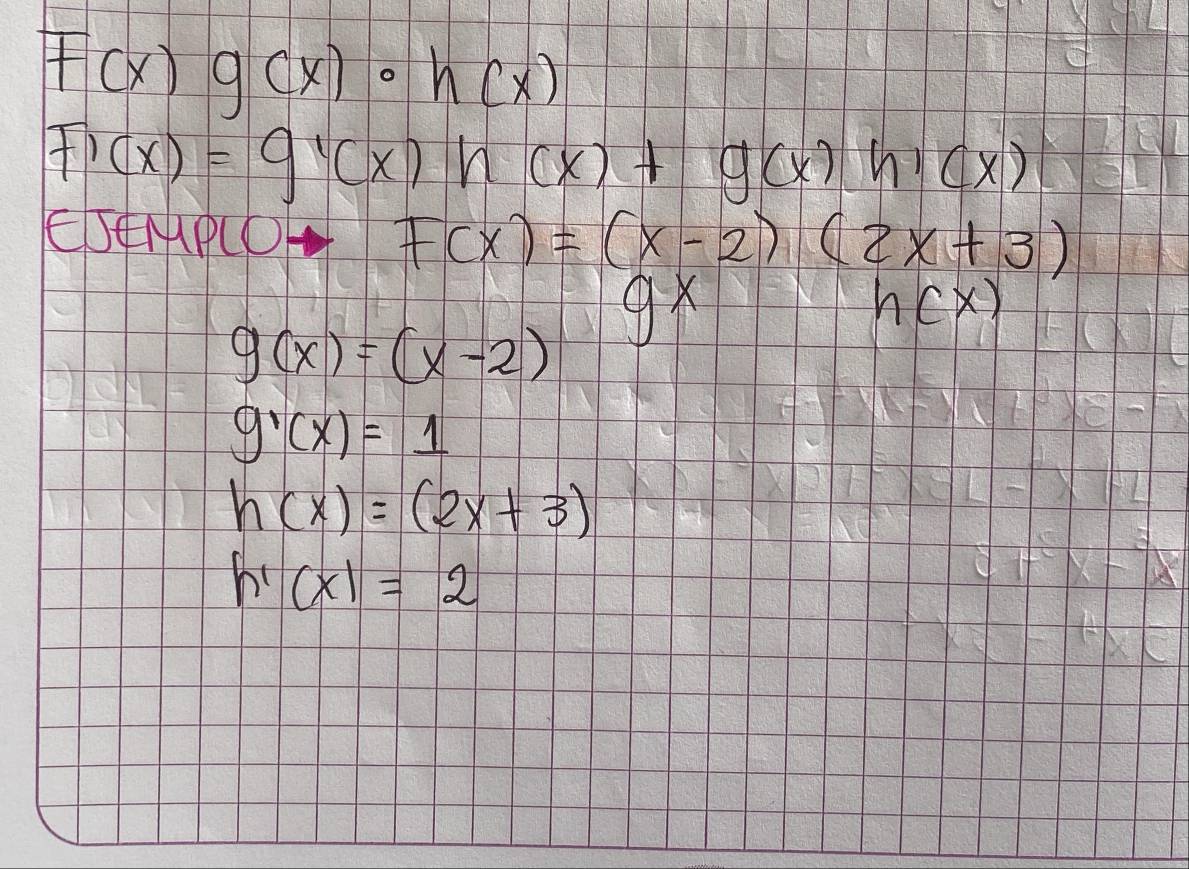 F(x) g(x) • h(x)
F'(x) = g'(x) h (x) + g(x) h'(x)
EJEMPLO→ F(x) = (x-2) (2x+3)
gx h(x)
g(x) = (x-2)
g'(x) = 1
h(x) = (2x+3)
h'(x) = 2